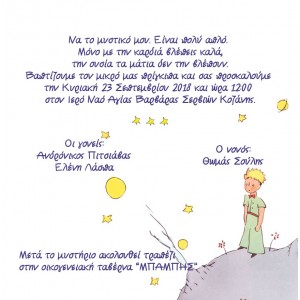 Να το μυστικό μου. Είναι πολύ απλό.
Μόνο με την καρδιά βλέπεις καλά,
την ουσία τα μάτια δεν την βλέπουν.
Βαπτίζουμε τον μικρό μας πρίγκιπα και σας προσκαλούμε
την Κυριακή 23 Σεπτεμβρίου 2018 και ώρα 1200
στον Ιερό Ναό Αγίας Βαρβάρας Σερβιών Κοζάνης.
Οι γονείς:
Ανδρόνικος Πιτσιάβας
Ελένη Λάσπα
Ο νονός:
Θωμάς Σούλης
Μετά το μυστήριο ακολουθεί τραπέζι
στην οικογενειακή ταβέρνα "ΜΠΑΜΠΗΣ"